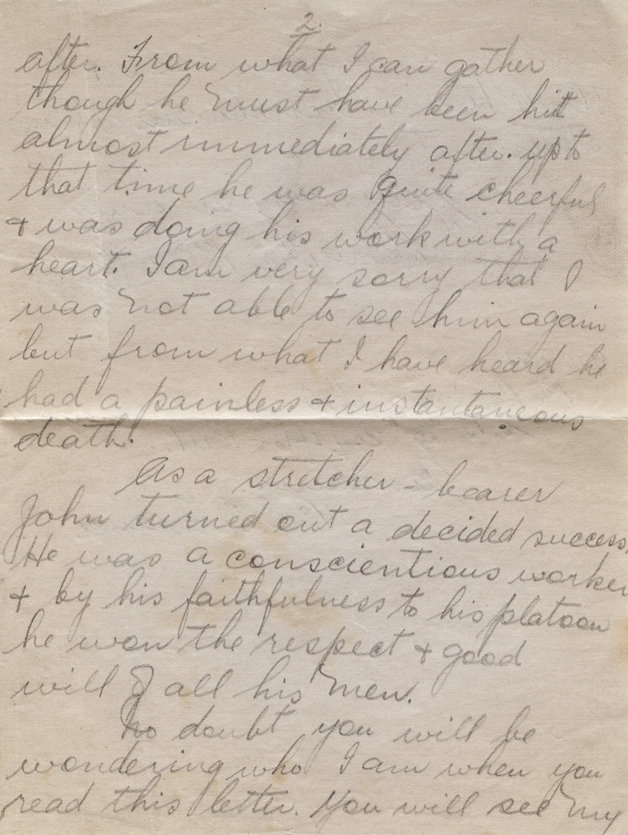 2.
after. From what I can gather
though he must have been hit
almost immediately after. up to
that time he was quite cheerful
+ was doing his work with a
heart. I am very sorry that I
was not able to see him again
but from what I have heard he
had a painless + instantaneous
death.
As a stretcher - bearer
John turned out a decided success.
He was a conscientious worker
+ by his faithfulness to his platoon
he won the respect + good
will of all his men.
No doubt you will be
wondering who I am when you
read this letter. You will see my